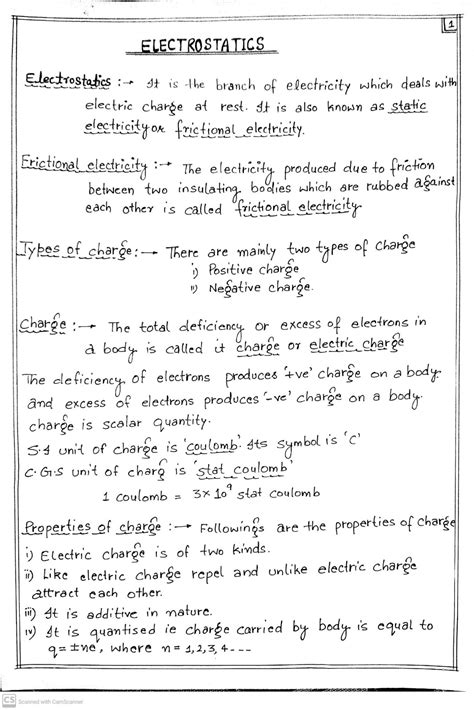 1
ELECTROSTATICS
Electrostatics :→ It is the branch of electricity which deals with
electric charge at rest. It is also known as static
electricity or frictional electricity.
Frictional electricity :→ The electricity produced due to friction
between two insulating bodies which are rubbed against
each other is called frictional electricity
Types of charge :→ There are mainly two types of charge
i) Positive charge
ii) Negative charge.
Charge :→ The total deficiency or excess of electrons in
a body is called it charge or electric charge
The deficiency of electrons produces '+ve' charge on a body.
and excess of electrons produces '-ve' charge on a body.
charge is scalar quantity.
S.I unit of charge is 'coulomb'. Its symbol is 'C'
C.G.S unit of charg is 'stat coulomb'
1 coulomb = 3×10⁹ stat coulomb
Properties of charge :→ Followings are the properties of charge
i) Electric charge is of two kinds.
ii) Like electric charge repel and unlike electric charge
attract each other.
iii) It is additive in nature.
iv) It is quantised ie charge carried by body is equal to
q = ±ne, where n = 1,2,3,4---
CS Scanned with CamScanner